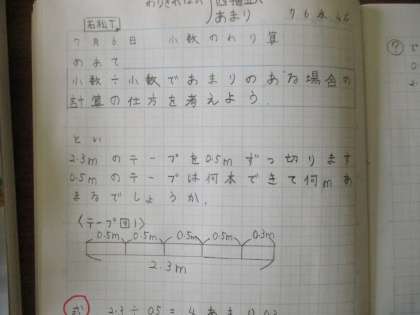 わりきれない
あまり
石松T
7月6日 小数のわり算
めあて
小数÷小数であまりのある場合の
計算の仕方を考えよう.
とい
2.3mのテープを0.5mずつ切ります
0.5mのテープは何本できて何mあ
まるでしょうか.
〈テープ図1〉
0.5m 0.5m 0.5m 0.5m 0.3m
2.3m
式 2.3÷0.5=4あまり0.3